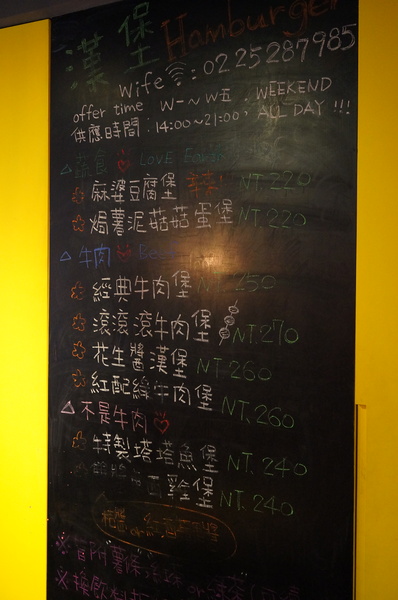 漢堡 Hamburger
Wife : 02 25287985
offer time W一~W五, WEEKEND
供應時間：14:00~21:00, ALL DAY !!!
蔬食 LOVE
麻婆豆腐堡 NT.220
焗薯泥菇菇蛋堡 NT.220
牛肉 Beef
經典牛肉堡 NT.250
滾滾滾牛肉堡 NT.270
花生醬漢堡 NT.260
紅配綠牛肉堡 NT.260
不是牛肉
特製塔塔魚堡 NT.240
堡 NT.240
or